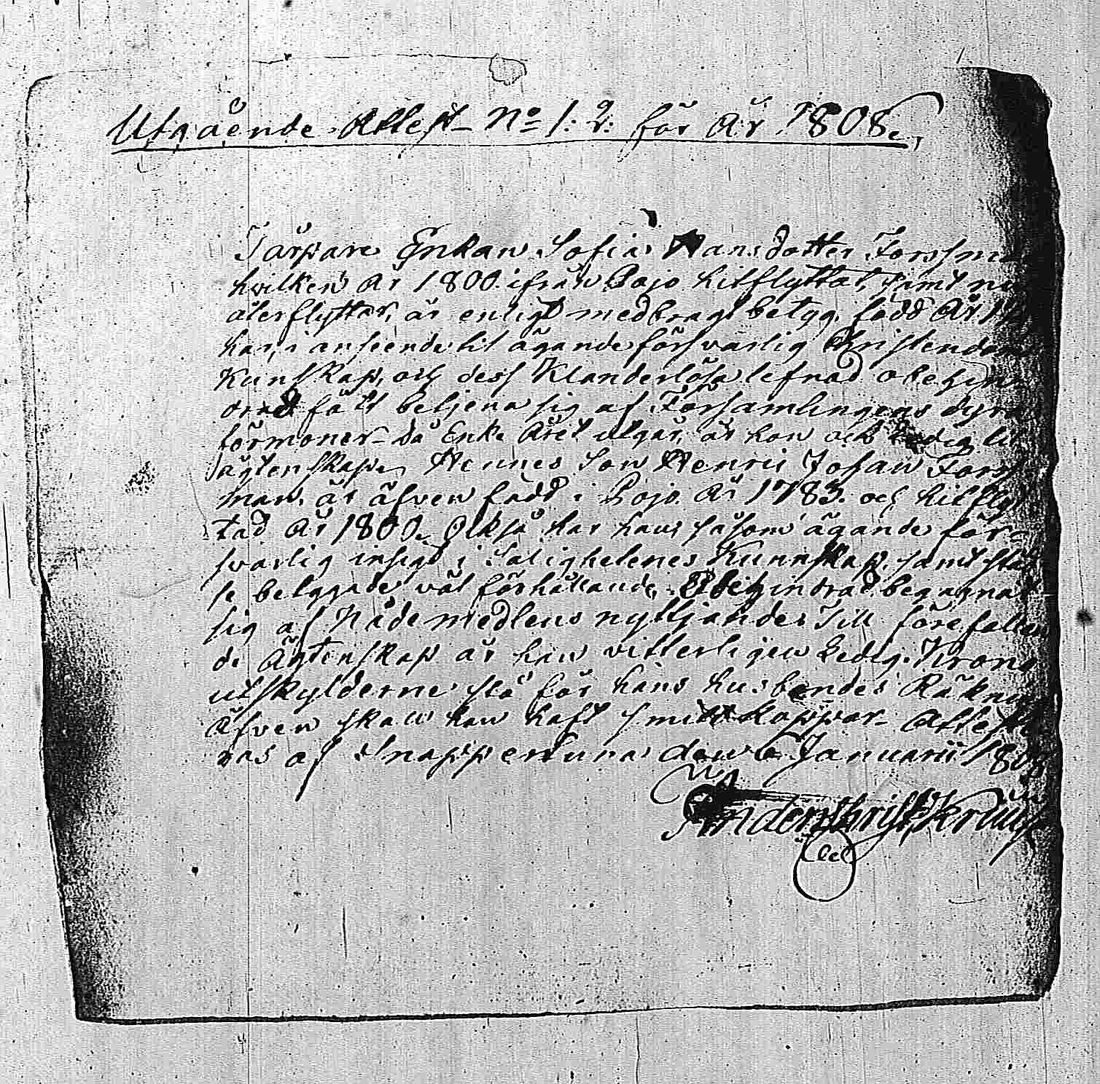 Utgående Attest No 1: 2: för År 1808.
Torpare Enkan Sofia Hansdotter Forssma
hvilken År 1800. ifrån Pojo hitflyttat, samt nu
återflyttar, är enligt medbragt betyg, född År 17
har, i anseende til ägande försvarlig Christendoms
Kunskap, och dess Klanderlösa lefnad obehin
drad fått betjena sig af Församlingens dyra
förmoner. Då Enke Året utgår, är hon och ledig til
ägtenskap. Hennes Son Henric Johan Forss
man är äfven född i Pojo År 1783. och hitflyt
tad År 1800. Också har han såsom ägande för-
svarlig insigt i Salighetenes Kunnskap, samt
betygade väl förhållande, Obehindrad begagnat
sig af Nåde medlens nyttjande. Till förefallan
de Ägtenskap är han vitterligen Ledig. Krono
utskylderne stå för hans husbondes Räkning
Äfven skall han haft smittkoppor. Atteste
ras af Snappertuna den 6 Januarii 1808